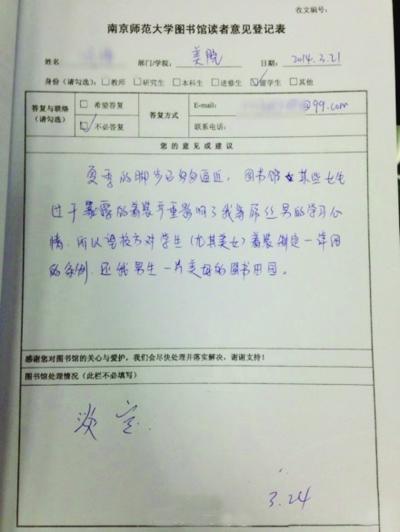 收文编号：
南京师范大学图书馆读者意见登记表
姓名 部门/学院： 美院 日期： 2014.3.21
身份（请勾选）： □教师 □研究生 □本科生 □进修生 ☑留学生 □其他
答复与联络（请勾选） □ 希望答复 答复方式 E-mail: @99.com
☑ 不必答复 联系电话：
您的意见或建议
夏季的脚步已匆匆逼近，图书馆某些女生
过于暴露的着装严重影响了我等屌丝男的学习心
情，所以望校方对学生（尤其美女）着装制定一详细
的条例，还我男生一片美好的图书田园。
感谢您对图书馆的关心与爱护，我们会尽快处理并落实解决，谢谢支持！
图书馆处理情况（此栏不必填写）
淡定.
3.24